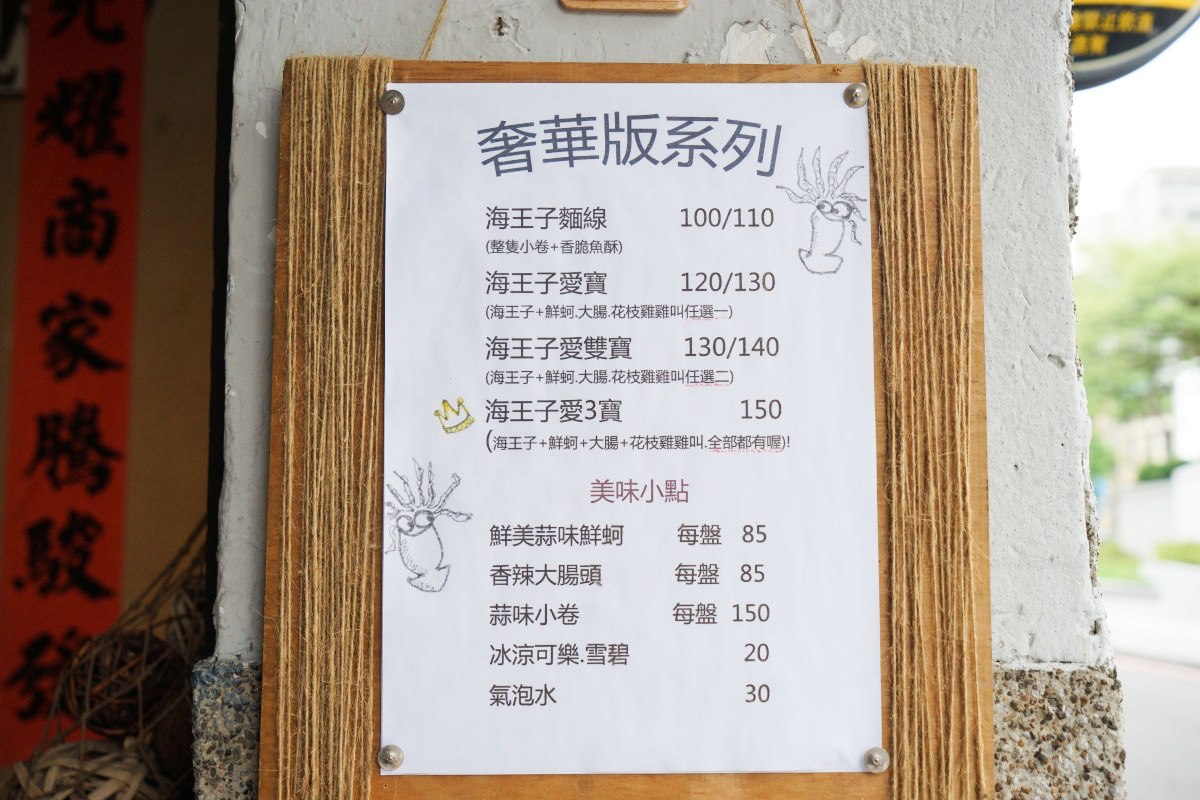 奢華版系列
海王子麵線 100/110
(整隻小卷+香脆魚酥)
海王子愛寶 120/130
(海王子+鮮蚵.大腸.花枝雞雞叫任選一)
海王子愛雙寶 130/140
(海王子+鮮蚵.大腸.花枝雞雞叫任選二)
海王子愛3寶 150
(海王子+鮮蚵+大腸+花枝雞雞叫.全部都有喔)!
美味小點
鮮美蒜味鮮蚵 每盤 85
香辣大腸頭 每盤 85
蒜味小卷 每盤 150
冰涼可樂.雪碧 20
氣泡水 30
耀商家騰駿發